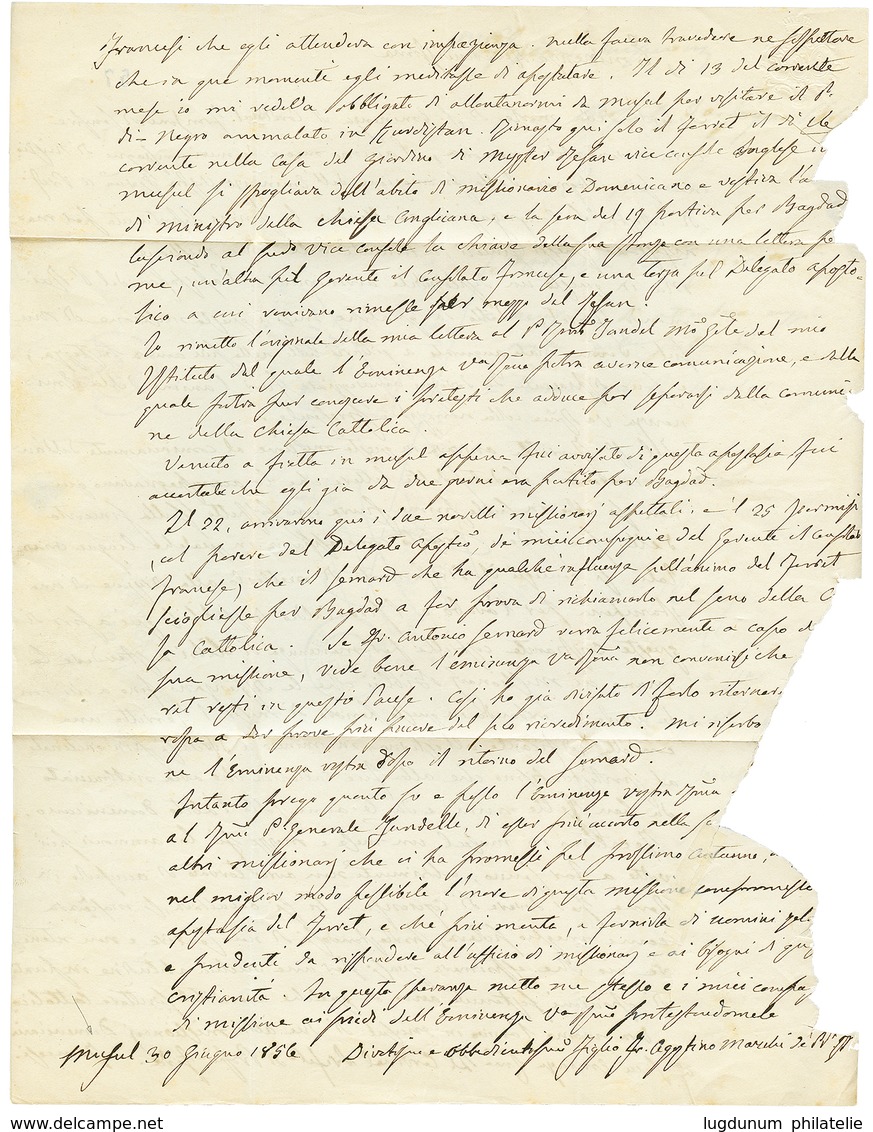 Francesi che egli attendeva con impazienza. nulla faceva travedere ne sospettare
che in que momenti egli meditasse di apostatare. Il di 13 del corrente
mese io mi vedeva obbligato di allontanarmi da Musul per visitare il P.
di Negro ammalato in Kurdistan. Rimasto qui solo il Ferret il di 16
corrente nella Casa del Giardino di Mugster Resan vice console Inglese in
Musul si spogliava dell'abito di missionario e Domenicano e vestiva l'a
di ministro della Chiesa Anglicana, e la sera del 19 partiva per Bagdad
lasciando al vice console la chiave della sua stanza con una lettera pe
me, un'altra pel Gerente il Consolato Francese, e una terza pel Delegato aposto-
lico a cui venivano rimesse per mezzo del Resan.
Io rimetto l'originale della mia lettera al P. Jandel Mo Gele del mio
Istituto dal quale l'Eminenza Va potra averne comunicazione, e dalla
quale potra pur conoscere i pretesti che adduce per separarsi dalla comunio-
ne della Chiesa Cattolica.
Venuto a fretta in Musul appena fui avvisato di questa apostasia fui
accertato che egli gia da due giorni era partito per Bagdad.
Il 22, arrivarono qui i due novelli missionarj aspettati. e il 25 permisi
, col parere del Delegato Apostco, de' miei compagni e del Gerente il Consolato
francese, che il Lemard che ha qualche influenza sull'animo del Ferret
sciogliesse per Bagdad a far prova di richiamarlo nel seno della C
sa Cattolica. Se Fr. Antonio Lemard verrà felicemente a capo d
sua missione, vede bene l'eminenza Va non convenirsi che
ret resti in questo Paese. Cosi ho gia divisato di farlo ritornar
ropa a dar prove piu sincere del suo ravvedimento. Mi riserbo
ne l'Eminenza vostra dopo il ritorno del Lemard.
Intanto prego quanto so e posso l'Eminenza vostra
al P. Generale Jandelli, di esser piu accorto nella sc
altri missionarj che ci ha promessi pel prossimo Autunno,
nel miglior modo possibile l'onore di questa missione compromesso
apostasia del Ferret, e che fornirla di uomini zel
e prudenti da rispondere all'ufficio di missionarj e ai bisogni di ques
cristianità. In questa speranza metto me stesso e i miei compag
di missione ai piedi dell'Eminenza Va protestandomele
Musul 30 Giugno 1856 Divotissmo e obbedientissmo Figlio Fr. Agostino Marchi de' P